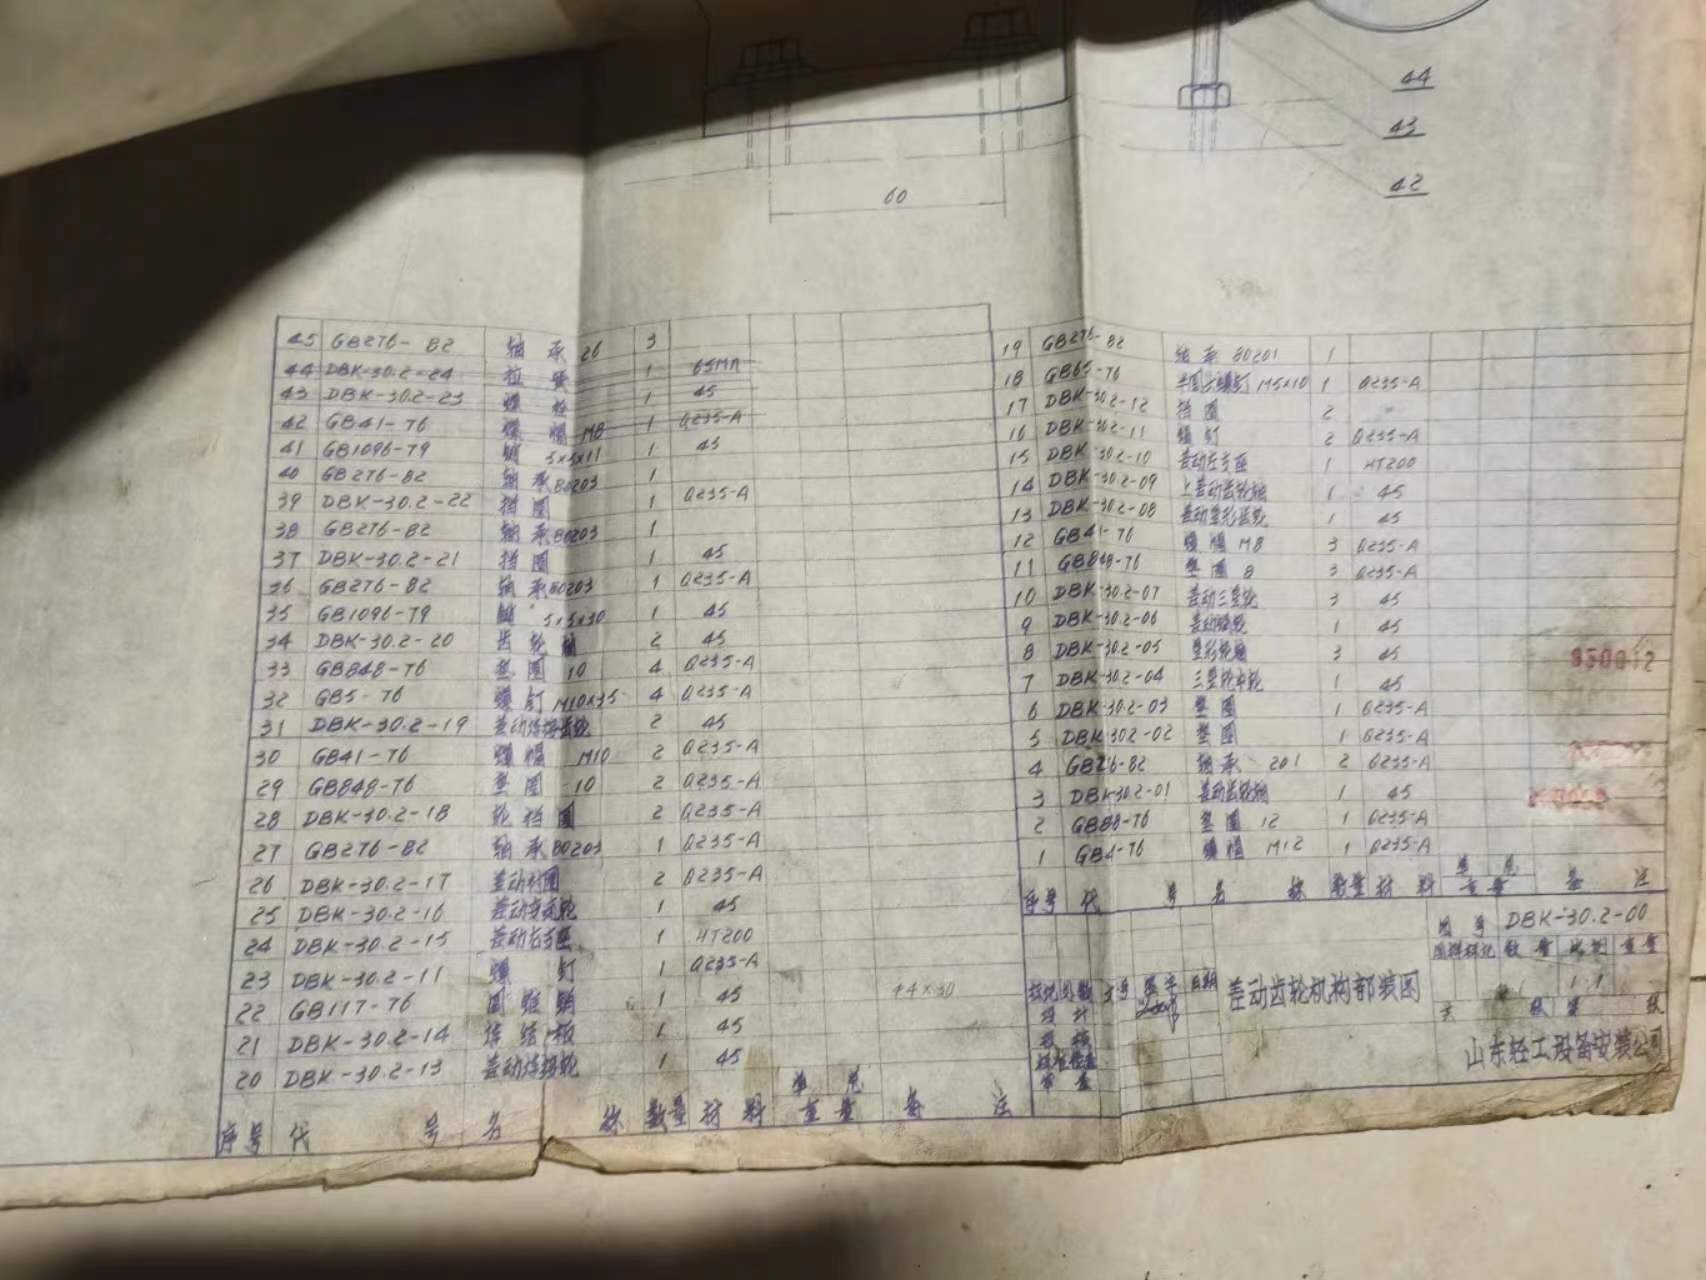 44
43
42
60
45 GB276-82 轴承 26 3
44 DBK-30.2-24 拉簧 1 65Mn
43 DBK-30.2-23 螺栓 1 45
42 GB41-76 螺帽 M8 1 Q235-A
41 GB1096-79 键 5x5x11 1 45
40 GB276-82 轴承 80203 1
39 DBK-30.2-22 挡圈 1 Q235-A
38 GB276-82 轴承 80203 1
37 DBK-30.2-21 挡圈 1 45
36 GB276-82 轴承 80203 1 Q235-A
35 GB1096-79 键 5x5x30 1 45
34 DBK-30.2-20 齿轮轴 2 45
33 GB848-76 垫圈 10 4 Q235-A
32 GB5-76 螺钉 M10x35 4 Q235-A
31 DBK-30.2-19 差动 齿轮 2 45
30 GB41-76 螺帽 M10 2 Q235-A
29 GB848-76 垫圈 10 2 Q235-A
28 DBK-30.2-18 轮挡圈 2 Q235-A
27 GB276-82 轴承 80203 1 Q235-A
26 DBK-30.2-17 差动 圈 2 Q235-A
25 DBK-30.2-16 差动 轮 1 45
24 DBK-30.2-15 差动右支座 1 HT200
23 DBK-30.2-11 螺钉 1 Q235-A
22 GB117-76 圆锥销 1 45 4x30
21 DBK-30.2-14 板 1 45
20 DBK-30.2-13 差动 轮 1 45
序号 代号 名称 数量 材料 单 总 重量 备注
19 GB276-82 轴承 80201 1
18 GB65-76 半圆头螺钉 M5x10 1 Q235-A
17 DBK-30.2-12 挡圈 2
16 DBK-30.2-11 螺钉 2 Q235-A
15 DBK-30.2-10 差动左支座 1 HT200
14 DBK-30.2-09 上差动齿轮轴 1 45
13 DBK-30.2-08 差动 齿轮 1 45
12 GB41-76 螺帽 M8 3 Q235-A
11 GB848-76 垫圈 8 3 Q235-A
10 DBK-30.2-07 差动三星轮 3 45
9 DBK-30.2-06 差动 轮 1 45
8 DBK-30.2-05 星形轮轴 3 45
7 DBK-30.2-04 三星轮 轮 1 45
6 DBK-30.2-03 垫圈 1 Q235-A
5 DBK-30.2-02 垫圈 1 Q235-A
4 GB276-82 轴承 201 2 Q235-A
3 DBK-30.2-01 差动齿轮轴 1 45
2 GB88-76 垫圈 12 1 Q235-A
1 GB4-76 螺帽 M12 1 Q235-A
序号 代号 名称 数量 材料 单 总 重量 备注
图号 DBK-30.2-00
图样标记 数量 比例 重量
1:1
共 张 第 张
标记 处数 文号 签字 日期
设计
校核
标准检查
审查
差动齿轮机构部装图
山东轻工设备安装公司